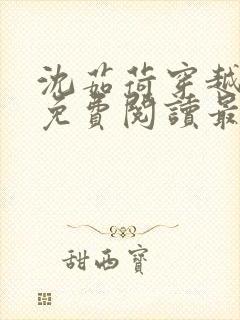 沈茹荷穿越
免費閱讀最
甜西寶